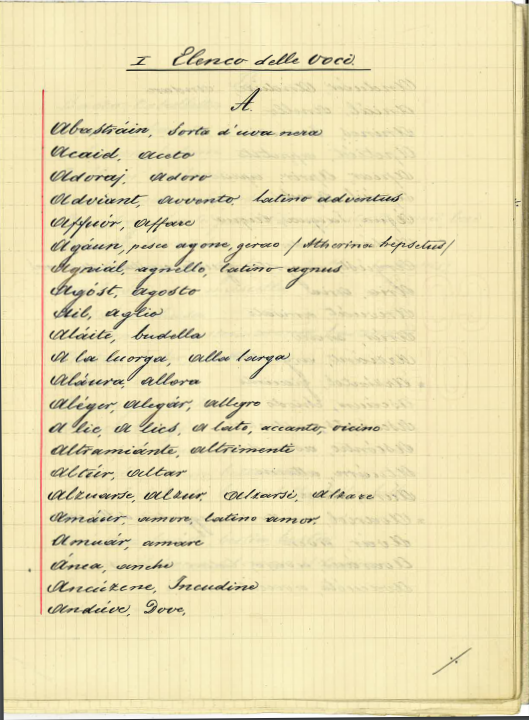 I Elenco delle voci.
A.
Abastráin, Sorta d'uva nera
Acaid, aceto
Adoraj, adoro
Adviant, avvento, latino adventus
Affuór, affare
Agáun, pesce agone, gerao / Atherina hepsetus /
Agniál, agnello, latino agnus
Agóst, agosto
Ail, aglio
Aláite, budella
A la luorga, alla larga
Aláura, allora
Aléger, alegár, allegro
A lic, A lics, a lato, accanto, vicino
Altramiánte, altrimente
Altúr, altar
Alzuarse, Alzur Alzarsi, Alzare
Amáur, amore, latino amor.
Amuár, amare
Ánca, anche
Ancúzene, Incudine
Andúve, Dove,